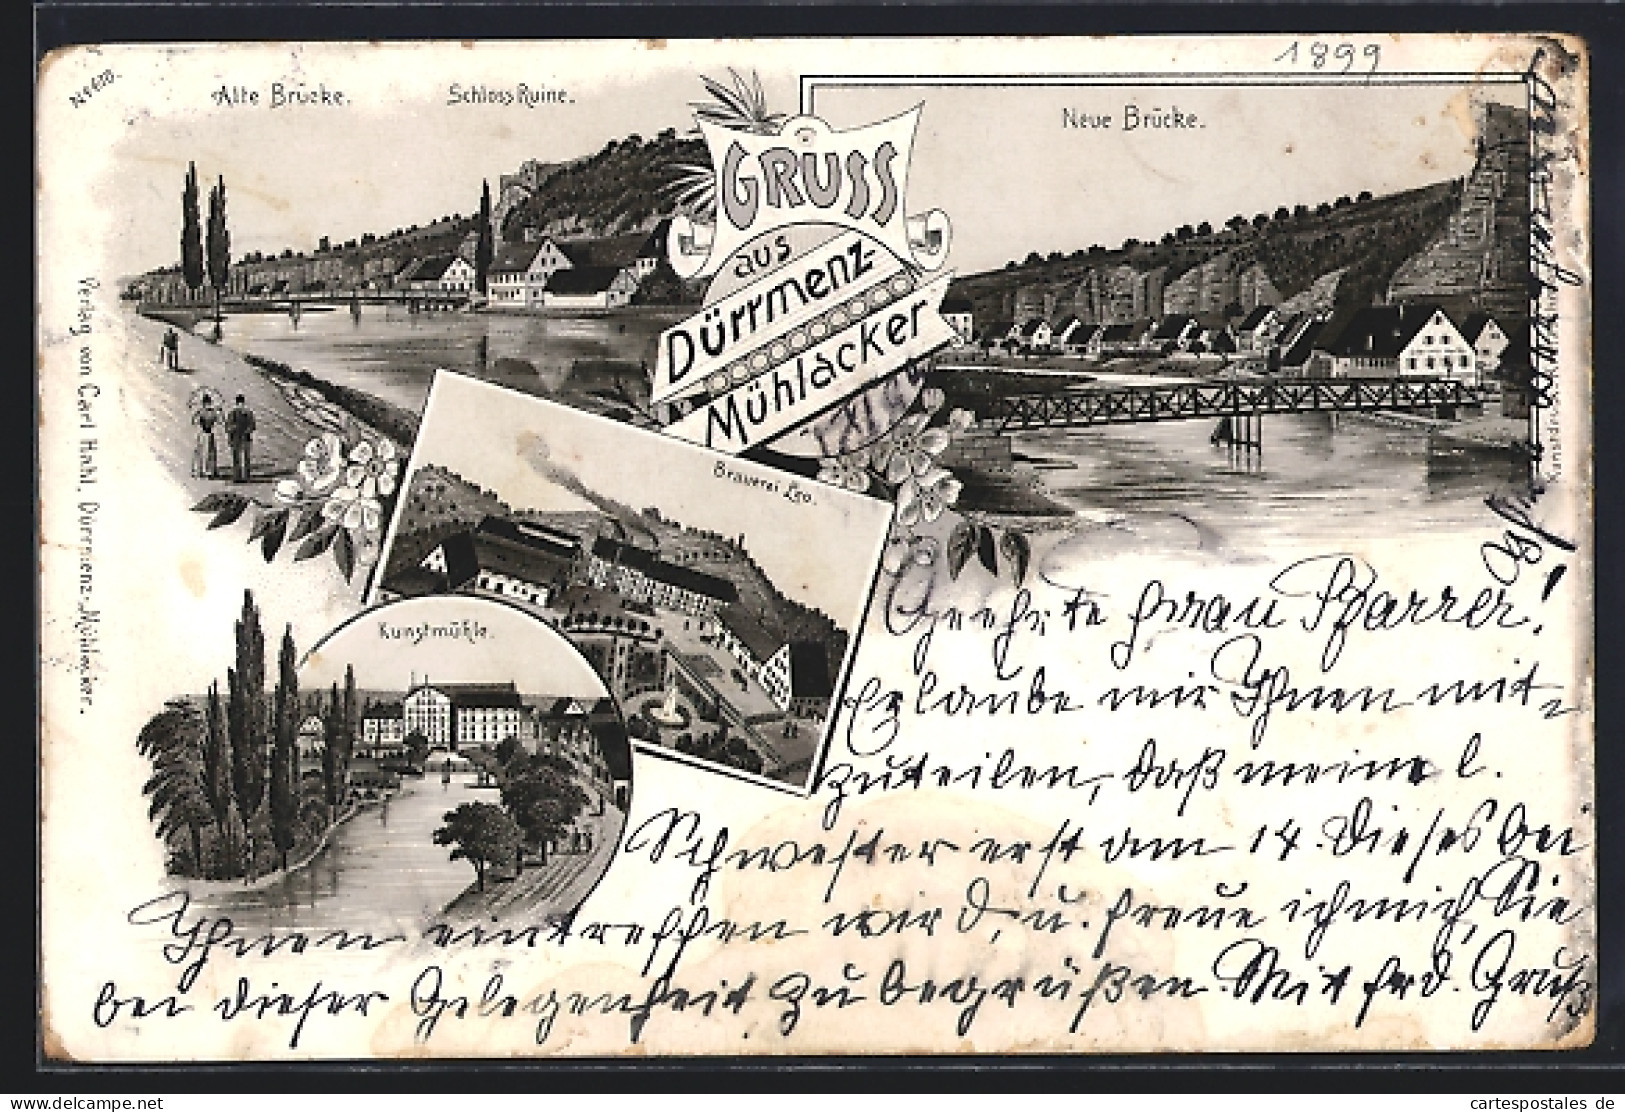 1899
Alte Brücke.
Schloss Ruine.
Neue Brücke.
GRUSS
aus
Dürrmenz-
Mühlacker
Brauerei Leo.
Kunstmühle.
Verlag von Carl Hahl, Dürrmenz-Mühlacker.
Geehrte Frau Pfarrer!
Erlaube mir Ihnen mit-
zuteilen, daß meine l.
Schwester erst am 14. dieses bei
Ihnen eintreffen wird, u. freue ich mich, Sie
bei dieser Gelegenheit zu begrüßen Mit frd. Gruß
© cartespostales.de
cartespostales de